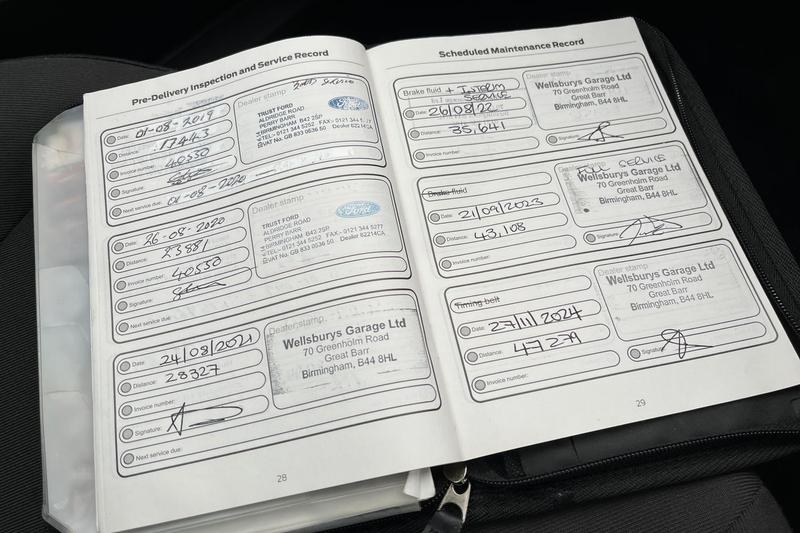 Pre-Delivery Inspection and Service Record
Date: 01-08-2019
Distance: 17443
Invoice number: 40550
Signature:
Next service due: 01-08-2020
Dealer stamp
2ND Service
TRUST FORD
ALDRIDGE ROAD
PERRY BARR
BIRMINGHAM B42 2SP
TEL:- 0121 344 5252 FAX:- 0121 344 5277
VAT No. GB 833 0636 50 Dealer 62214CA
Ford
Date: 26-08-2020
Distance: 23881
Invoice number: 40550
Signature:
Next service due:
Dealer stamp
TRUST FORD
ALDRIDGE ROAD
PERRY BARR
BIRMINGHAM B42 2SP
TEL:- 0121 344 5252 FAX:- 0121 344 5277
VAT No. GB 833 0636 50 Dealer 62214CA
Ford
Date: 24/08/2021
Distance: 28327
Invoice number:
Signature:
Next service due:
Dealer stamp
Wellsburys Garage Ltd
70 Greenholm Road
Great Barr
Birmingham, B44 8HL
28
Scheduled Maintenance Record
Brake fluid + INTERIM
SERVICE
Date: 26/08/22
Distance: 35,641
Invoice number:
Dealer stamp
Wellsburys Garage Ltd
70 Greenholm Road
Great Barr
Birmingham, B44 8HL
Signature:
Brake fluid
Date: 21/09/2023
Distance: 43,108
Invoice number:
Dealer stamp
FULL SERVICE
Wellsburys Garage Ltd
70 Greenholm Road
Great Barr
Birmingham, B44 8HL
Signature:
Timing belt
Date: 27/11/2024
Distance: 47279
Invoice number:
Dealer stamp
Wellsburys Garage Ltd
70 Greenholm Road
Great Barr
Birmingham, B44 8HL
Signature:
29